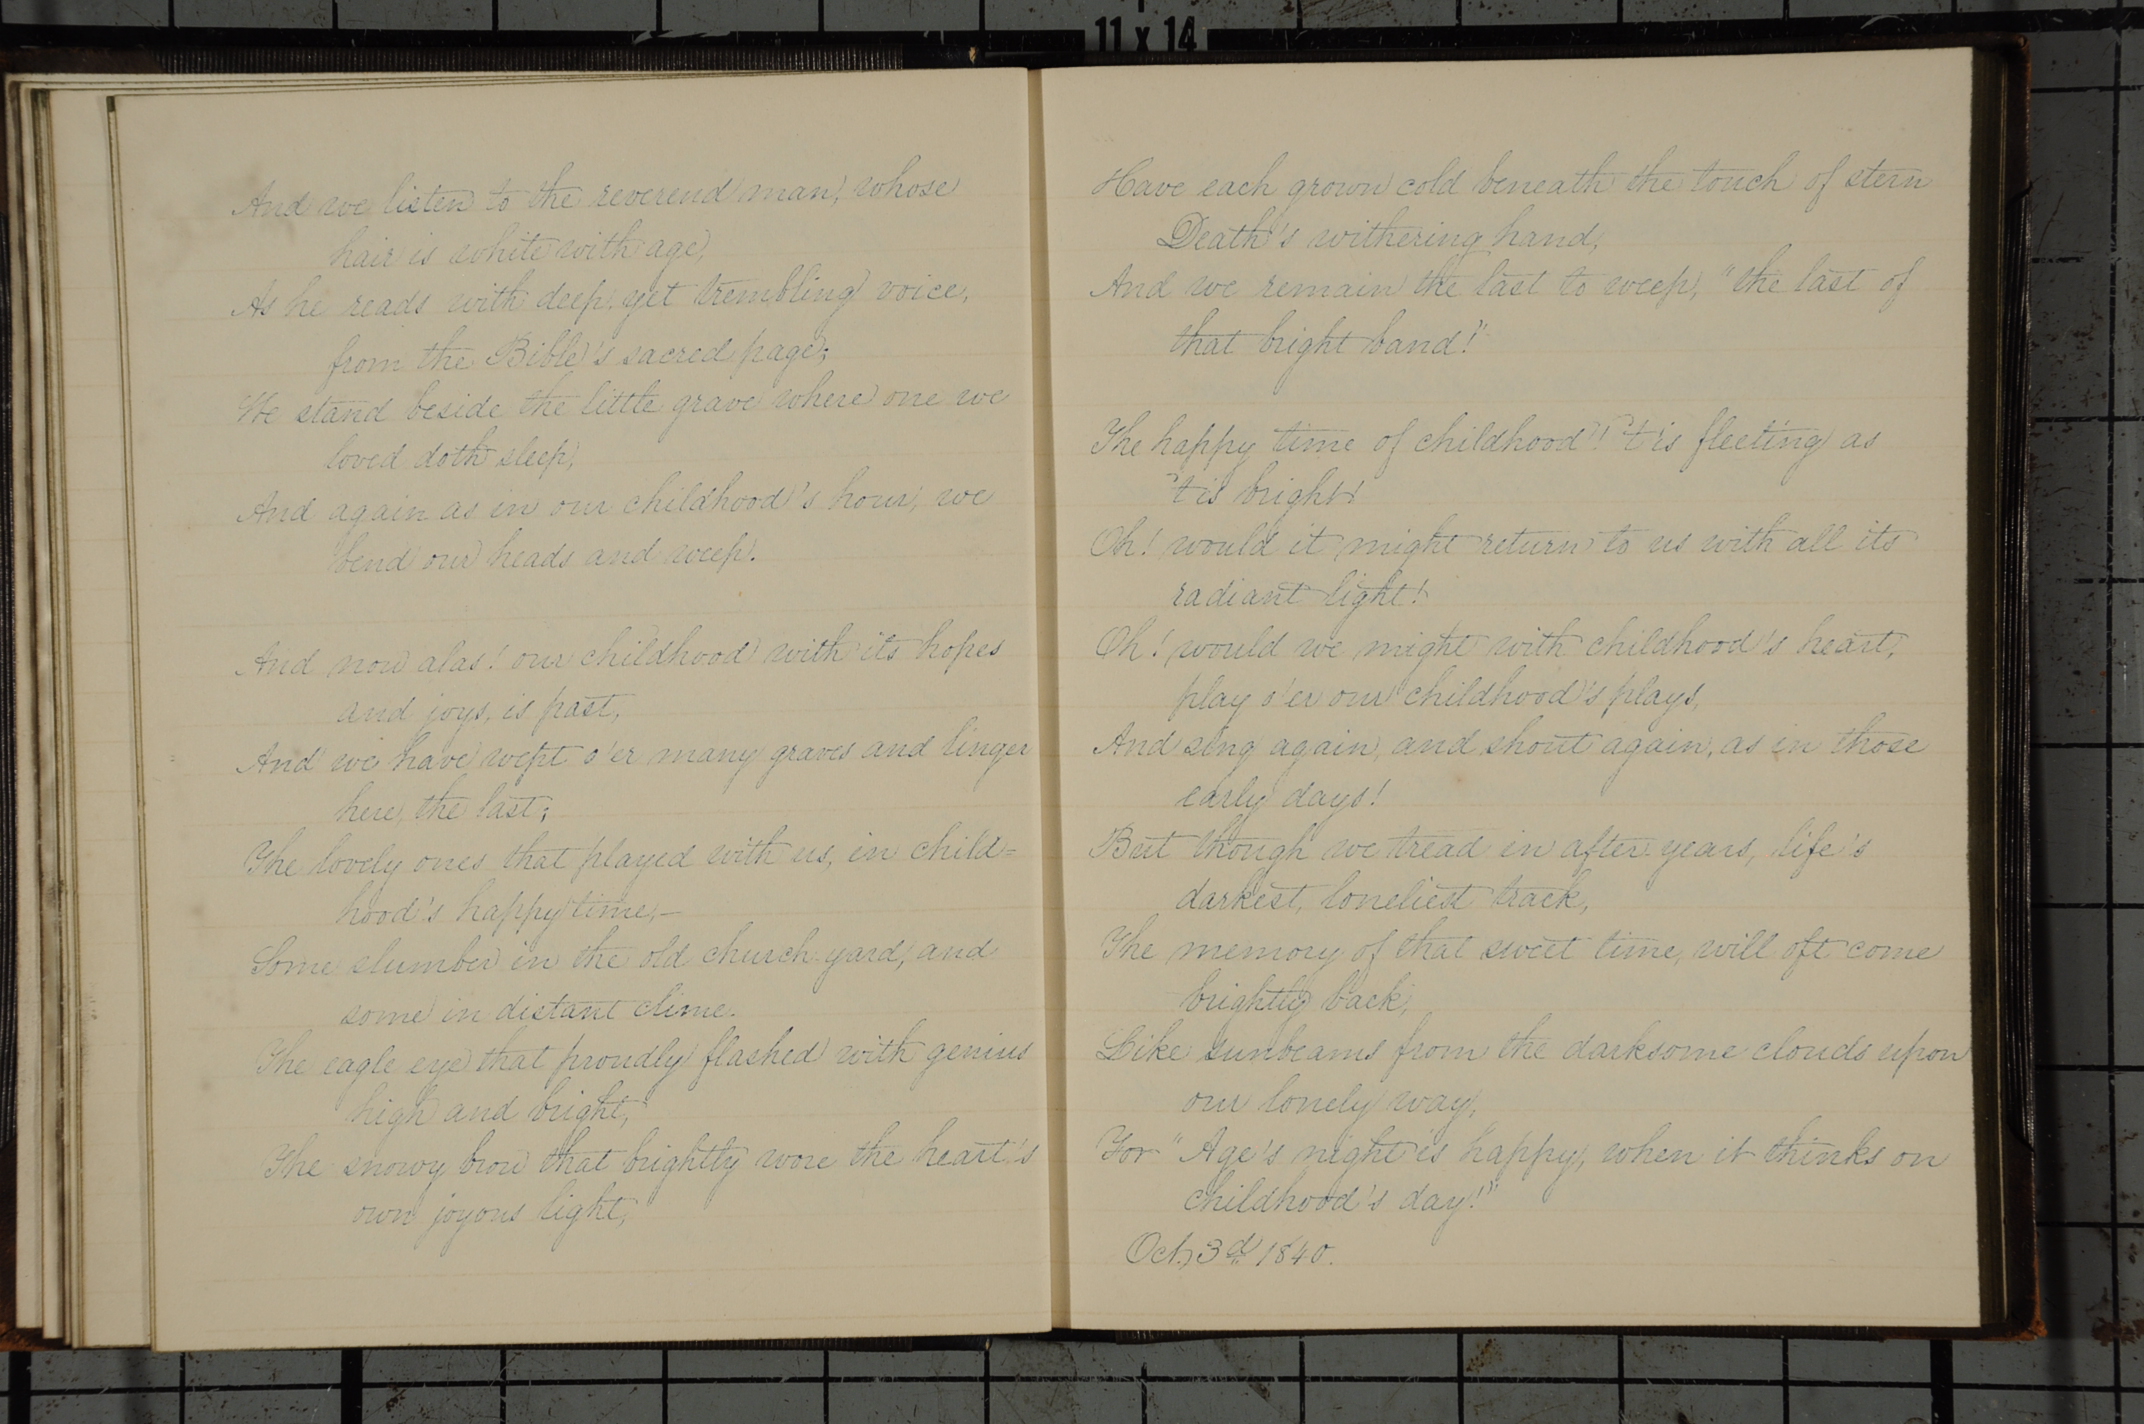 11 x 14
And we listen to the reverend man, whose
hair is white with age,
As he reads with deep, yet trembling voice,
from the Bible's sacred page;
We stand beside the little grave where one we
loved doth sleep,
And again as in our childhood's hour, we
bend our heads and weep.
And now alas! our childhood with its hopes
and joys, is past,
And we have wept o'er many graves and linger
here, the last;
The lovely ones that played with us, in child-
hood's happy time,—
Some slumber in the old church yard, and
some in distant clime.
The eagle eye that proudly flashed with genius
high and bright,
The snowy brow that brightly wore the heart's
own joyous light,
Have each grown cold beneath the touch of stern
Death's withering hand,
And we remain the last to weep, "the last of
that bright band!"
The happy time of childhood!! 't is fleeting as
't is bright!
Oh! would it might return to us with all its
radiant light!
Oh! would we might with childhood's heart,
play o'er our childhood's plays,
And sing again, and shout again, as in those
early days!
But though we tread in after years, life's
darkest, loneliest track,
The memory of that sweet time, will oft come
brightly back,
Like sunbeams from the darksome clouds upon
our lonely way,
For "Age's night is happy, when it thinks on
childhood's day!"
Oct. 3d 1840.